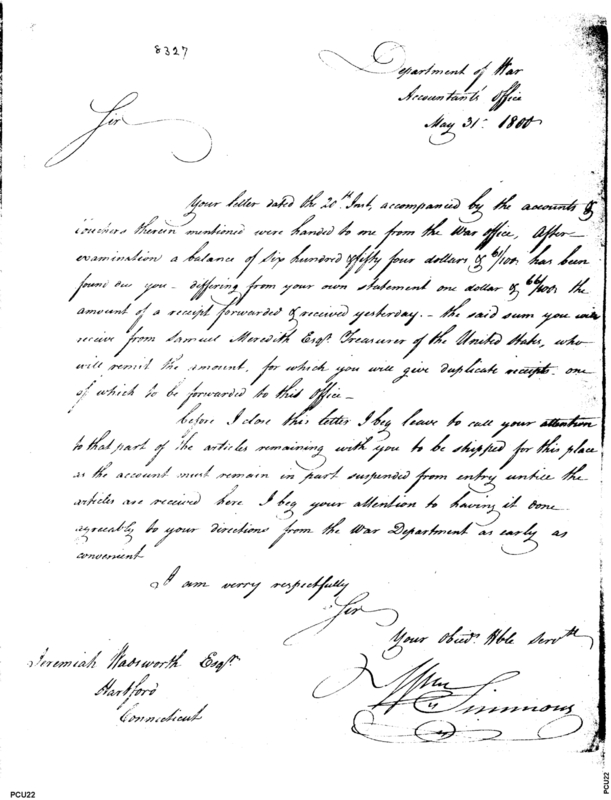 8327
Department of War
Accountants Office
May 31st 1800
Sir
Your letter dated the 20th Inst, accompanied by the accounts &
vouchers therein mentioned were handed to me from the War office, After
examination a balance of Six hundred & fifty four dollars & 61/100s has been
found due you - differing from your own statement one dollar & 66/100s the
amount of a receipt forwarded & received yesterday. - the said sum you will
receive from Samuel Meredith Esqr. Treasurer of the United States, who
will remit the amount, for which you will give duplicate receipts one
of which to be forwarded to this Office -
before I close this letter I beg leave to call your attention
to that part of the articles remaining with you to be shipped for this place
as the account must remain in part suspended from entry untill the
articles are received here I beg your attention to having it done
agreeably to your directions from the War Department as early as
convenient
I am verry respectfully
Sir
Your Obedt. Hble Servth
Wm Simmons
Jeremiah Wadsworth Esqr.
Hartford
Connecticut
PCU22
PCU22